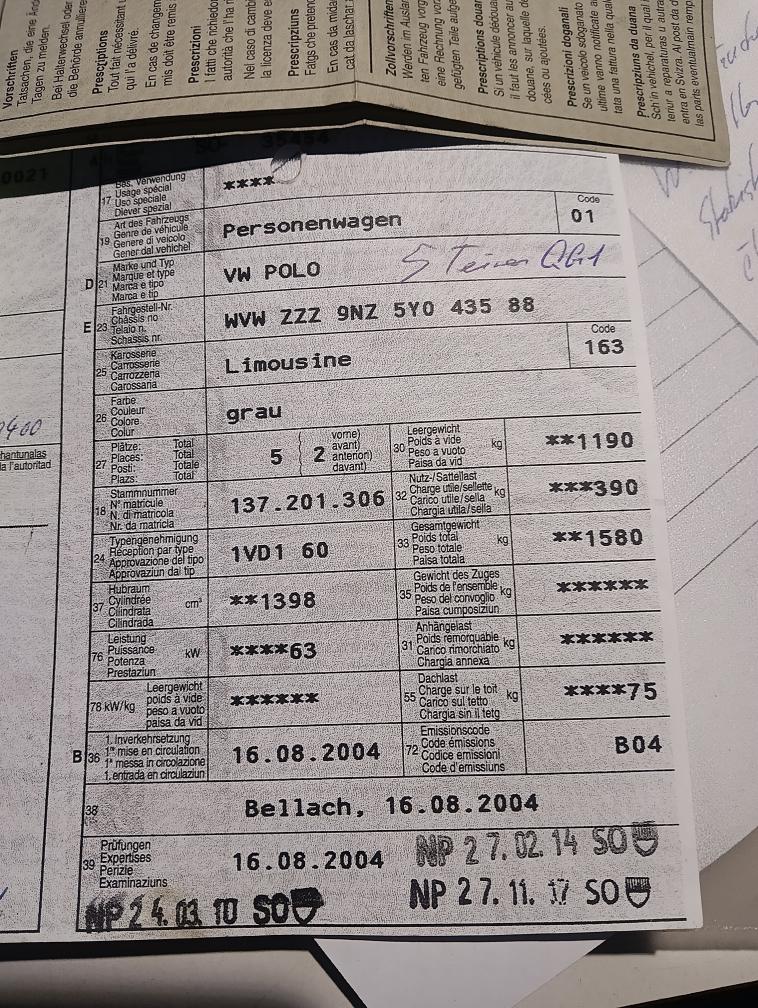 Vorschriften
Tatsachen, die eine Änd
Tagen zu melden.
Bei Halterwechsel oder
die Behörde annulliere
Prescriptions
Tout fait nécessitant u
qui l'a délivré.
En cas de changeme
mis doit être remis
Prescrizioni
I fatti che richiedon
autorità che l'ha ri
Nel caso di cambi
la licenza deve e
Prescripziuns
Fatgs che pretend
En cas da midad
cat da laschar
Zollvorschriften
Werden im Ausland
ten Fahrzeug vorg
eine Rechnung vorz
gefügten Teile aufge
Prescriptions douan
Si un véhicule dédoua
il faut les annoncer au
douane, sur laquelle de
cées ou ajoutées.
Prescrizioni doganali
Se un veicolo soboganato
ultime vanno notificate a
tata una fattura nella qual
Prescripziuns da duana
Sch'in vehichel, per il qual i
teriur a reparaturas u autra
entra en Svizra. Al post da d
las parts eventualmain remp
0021
35454
Bes. Verwendung
17 Usage spécial
Uso speciale
Diever spezial
****
Art des Fahrzeugs
19 Genre de véhicule
Genere di veicolo
Gener dal vehichel
Personenwagen
Code
01
D 21 Marke und Typ
Marque et type
Marca e tipo
Marca e tip
VW POLO
E 23 Fahrgestell-Nr.
Châssis no
Telaio n.
Schassis nr.
WVW ZZZ 9NZ 5Y0 435 88
25 Karosserie
Carrosserie
Carrozzeria
Carossaria
Limousine
Code
163
26 Farbe
Couleur
Colore
Colur
grau
27 Plätze: Total
Places: Total
Posti: Totale
Plazs: Total
5 ( 2 vorne)
avant)
anteriori)
davant)
30 Leergewicht
Poids à vide
Peso a vuoto
Paisa da vid
kg
**1190
18 Stammnummer
N° matricule
N. di matricola
Nr. da matricla
137.201.306
32 Nutz-/Sattellast
Charge utile/sellette
Carico utile/sella
Chargia utila/sella
kg
***390
24 Typengenehmigung
Réception par type
Approvazione del tipo
Approvaziun dal tip
1VD1 60
33 Gesamtgewicht
Poids total
Peso totale
Paisa totala
kg
**1580
37 Hubraum
Cylindrée
Cilindrata
Cilindrada
cm³
**1398
35 Gewicht des Zuges
Poids de l'ensemble
Peso del convoglio
Paisa cumposiziun
kg
******
76 Leistung
Puissance
Potenza
Prestaziun
kW
****63
31 Anhängelast
Poids remorquable
Carico rimorchiato
Chargia annexa
kg
******
78 kW/kg Leergewicht
poids à vide
peso a vuoto
paisa da vid
******
55 Dachlast
Charge sur le toit
Carico sul tetto
Chargia sin il tetg
kg
****75
B 36 1. Inverkehrsetzung
1re mise en circulation
1a messa in circolazione
1. entrada en circulaziun
16.08.2004
72 Emissionscode
Code émissions
Codice emissioni
Code d'emissiuns
B04
38
Bellach, 16.08.2004
39 Prüfungen
Expertises
Perizie
Examinaziuns
16.08.2004
NP 27.02.14 SO
NP 24.03.10 SO
NP 27.11.17 SO
hantunalas
la l'autoritad